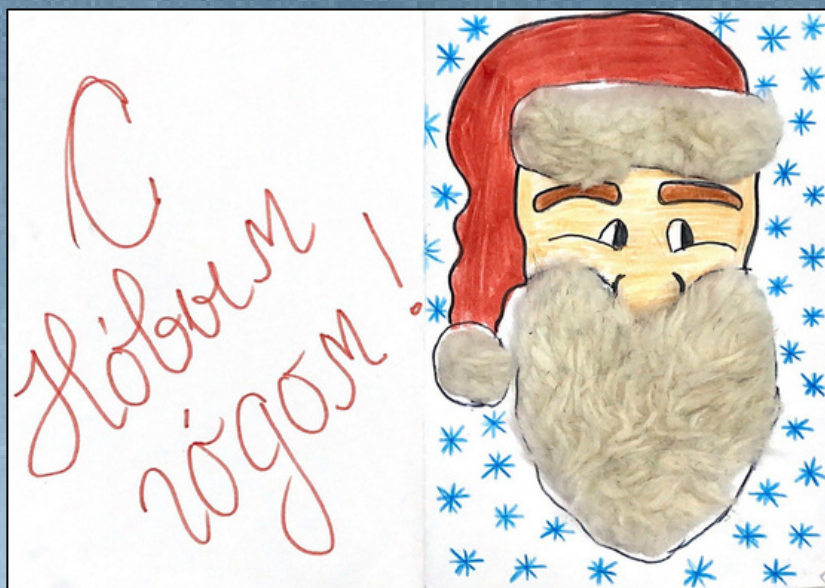 С
Но́вым
го́дом!